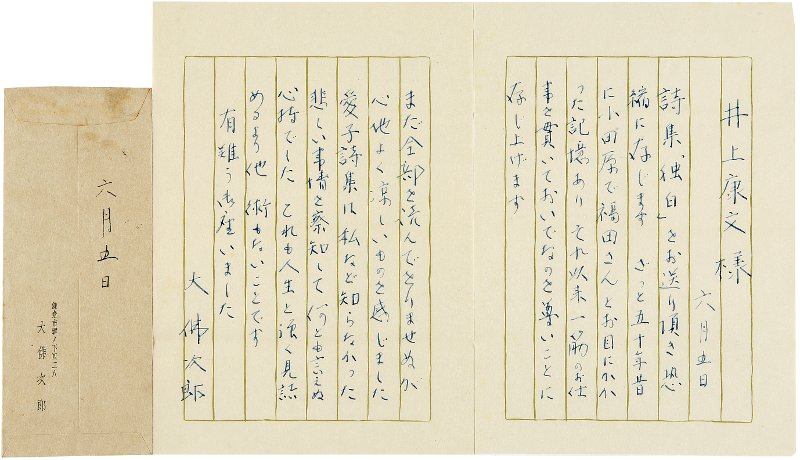 井上康文様
六月五日
詩集「独白」をお送り頂き恐
縮に存じます ざっと五十年昔
に小田原で福田さんとお目にかか
った記憶あり それ以来一筋のお仕
事を貫いておいでなのを尊いことに
存じ上げます
まだ全部を読んでをりませぬが
心地よく涼しいものを感じました
愛子詩集は私など知らなかった
悲しい事情を察知して何とも言えぬ
心持でした これも人生と強く見詰
めるより他 術もないことです
有難う御座いました
大佛次郎
六月五日
鎌倉市雪ノ下
大佛次郎